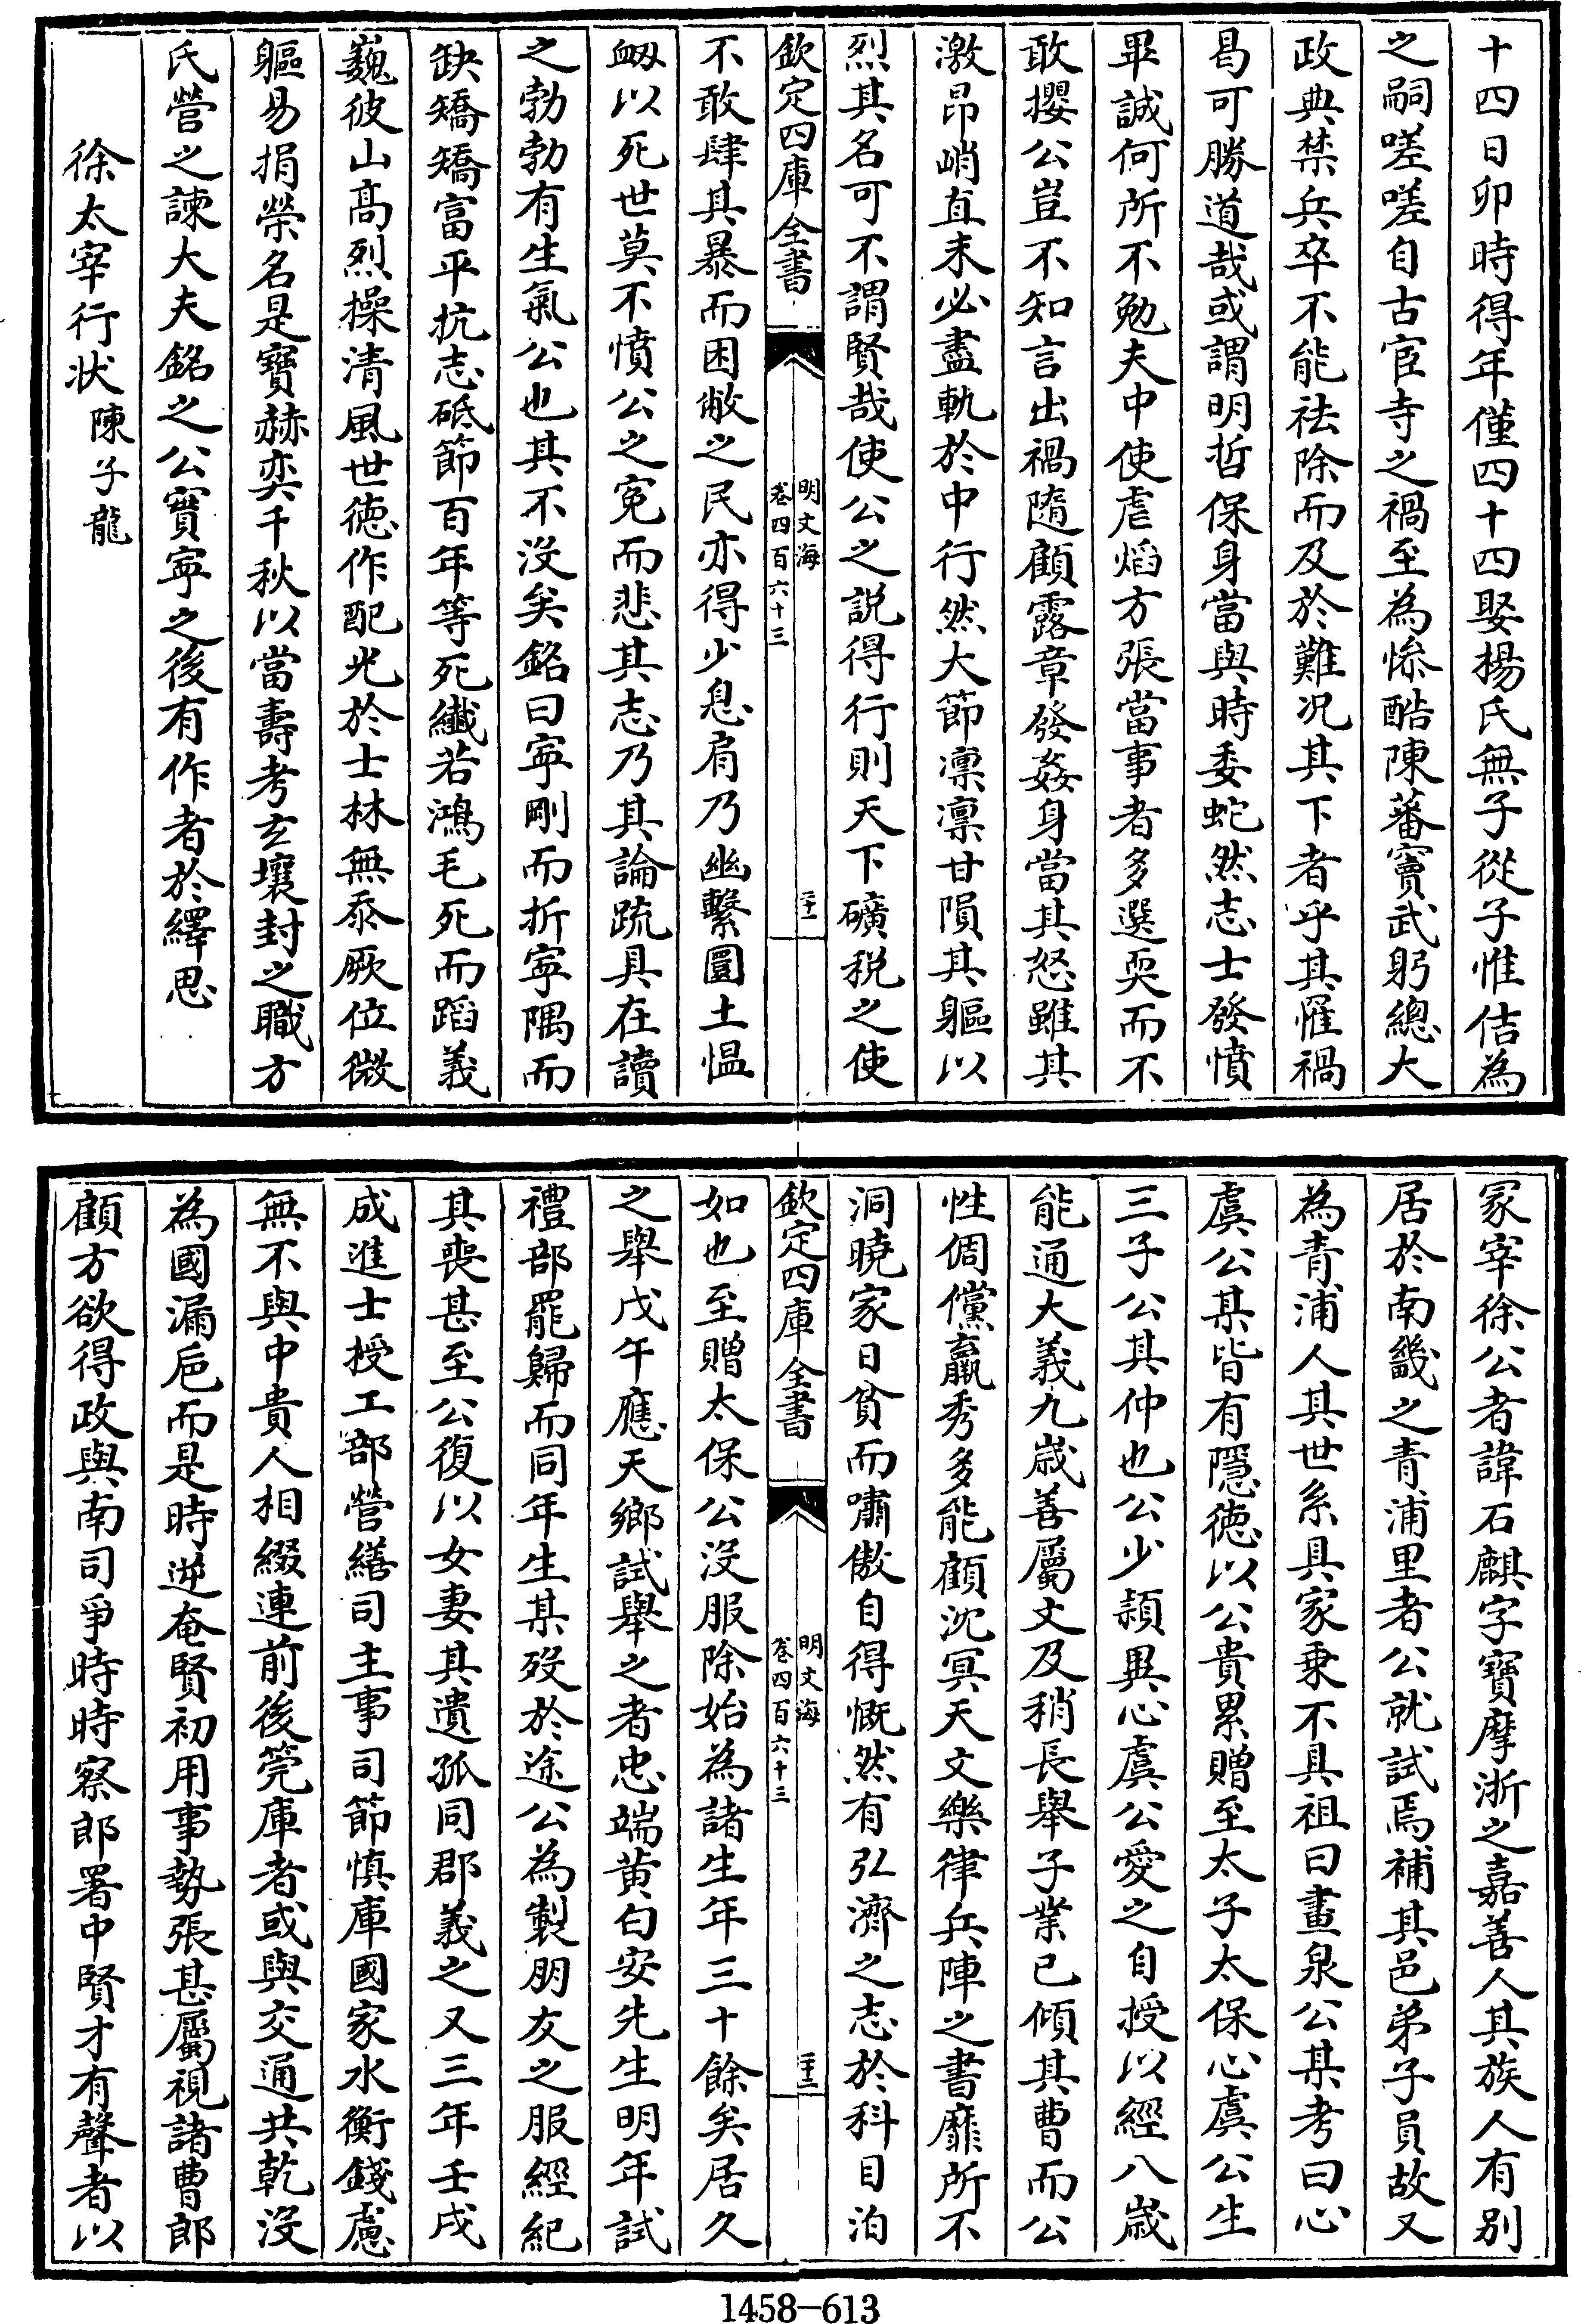 十四日卯時得年僅四十四娶楊氏無子從子惟佶為
之嗣嗟嗟自古宦寺之禍至為慘酷陳蕃竇武躬總大
政典禁兵卒不能祛除而及於難况其下者乎其罹禍
曷可勝道哉或謂明哲保身當與時委蛇然志士發憤
畢誠何所不勉夫中使虐熖方張當事者多選耎而不
敢攖公豈不知言出禍隨顧露章發姦身當其怒雖其
激昂峭直未必盡軌於中行然大節凛凛甘隕其軀以
烈其名可不謂賢哉使公之説得行則天下礦税之使
欽定四庫全書
明文海
卷四百六十三
二十一
不敢肆其暴而困敝之民亦得少息肩乃幽繫圜土愠
衂以死世莫不憤公之寃而悲其志乃其論疏具在讀
之勃勃有生氣公也其不沒矣銘曰寧剛而折寧隅而
缺矯矯富平抗志砥節百年等死纎若鴻毛死而蹈義
巍彼山高烈操清風世徳作配光於士林無忝厥位微
軀易捐榮名是寶赫奕千秋以當壽考玄壤封之職方
氏營之諫大夫銘之公實寧之後有作者於繹思
徐太宰行状 陳子龍
冢宰徐公者諱石麒字寶摩浙之嘉善人其族人有别
居於南畿之青浦里者公就試焉補其邑弟子員故又
為青浦人其世系具家乗不具祖曰畫泉公某考曰心
虞公某皆有隱徳以公貴累贈至太子太保心虞公生
三子公其仲也公少頴異心虞公愛之自授以經八歳
能通大義九歳善屬文及稍長舉子業已傾其曹而公
性倜儻羸秀多能顧沈冥天文樂律兵陣之書靡所不
洞曉家日貧而嘯傲自得慨然有弘濟之志於科目泊
欽定四庫全書
明文海
卷四百六十三
二十二
如也至贈太保公沒服除始為諸生年三十餘矣居久
之舉戊午應天鄉試舉之者忠端黄白安先生明年試
禮部罷歸而同年生某歿於途公為製朋友之服經紀
其喪甚至公復以女妻其遺孤同郡義之又三年壬戌
成進士授工部營繕司主事司節慎庫國家水衡錢慮
無不與中貴人相綴連前後筦庫者或與交通共乾沒
為國漏巵而是時逆奄賢初用事勢張甚屬視諸曹郎
顧方欲得政與南司爭時時察郎署中賢才有聲者以
1458-613